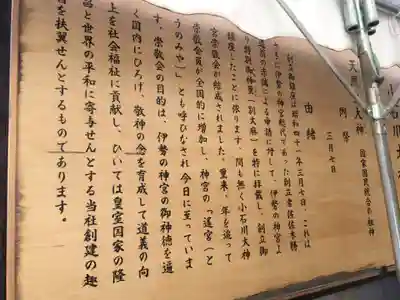 小石川大
天照大神 国家国民統合の祖神
例祭 三月七日
由緒
創立御鎮座は昭和四十一年三月七日、これは
さきに伊勢の神宮総代であった創立者佐佐木勝
造翁の赤誠による申請に対して、伊勢の神宮よ
り特別御神璽(別大麻)を特に拝戴し、創立御
鎮座したことに依ります。間も無く小石川大神
宮崇敬会が結成されました。爾来、年を追って
崇敬会員が全国的に増加し、神宮の「遥宮(と
うのみや)」とも呼びなされ今日に至っていま
す。崇敬会の目的は、伊勢の神宮の御神徳を遍
く国内にひろげ、敬神の念を育成して道義の向
上を社会福祉に貢献し、ひいては皇室国家の隆
昌と世界の平和に寄与せんとする当社創建の趣
旨を扶翼せんとするものであります。